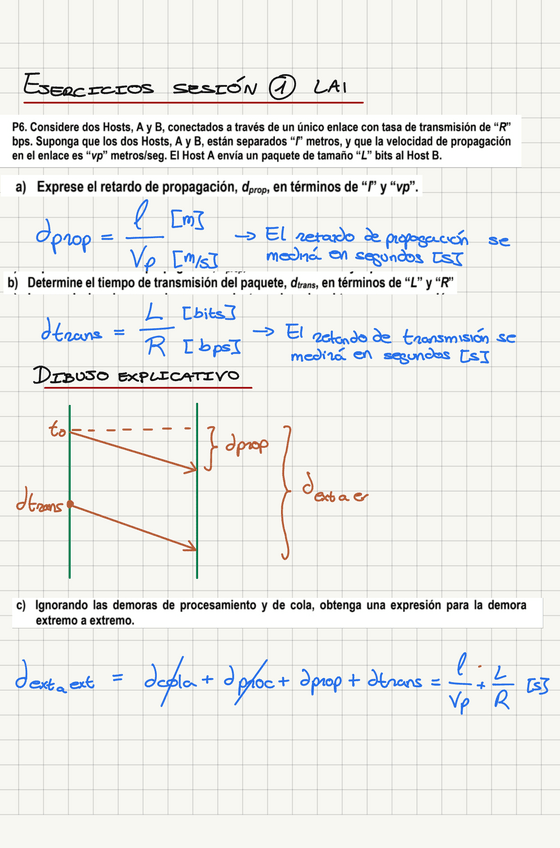 EJERCICIOS SESIÓN ① LAI
P6. Considere dos Hosts, A y B, conectados a través de un único enlace con tasa de transmisión de “R”
bps. Suponga que los dos Hosts, A y B, están separados “l” metros, y que la velocidad de propagación
en el enlace es “vp” metros/seg. El Host A envía un paquete de tamaño “L” bits al Host B.
a) Exprese el retardo de propagación, dprop, en términos de “l” y “vp”.
dprop = l [m] / Vp [m/s] → El retardo de propagación se
medirá en segundos [s]
b) Determine el tiempo de transmisión del paquete, dtrans, en términos de “L” y “R”
dtrans = L [bits] / R [bps] → El retardo de transmisión se
medirá en segundos [s]
DIBUJO EXPLICATIVO
to
dprop
dtrans
dext a er
c) Ignorando las demoras de procesamiento y de cola, obtenga una expresión para la demora
extremo a extremo.
dext a ext = dcola + dproc + dprop + dtrans = l/Vp + L/R [s]